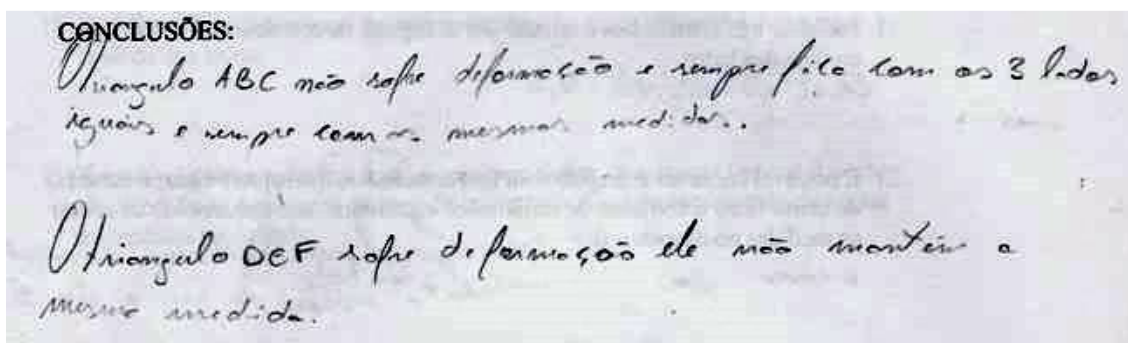 CONCLUSÕES:
O triangulo ABC não sofre deformação e sempre fica com os 3 lados
iguais e sempre com as mesmas medidas.
O triangulo DEF sofre deformação ele não mantém a
mesma medida.